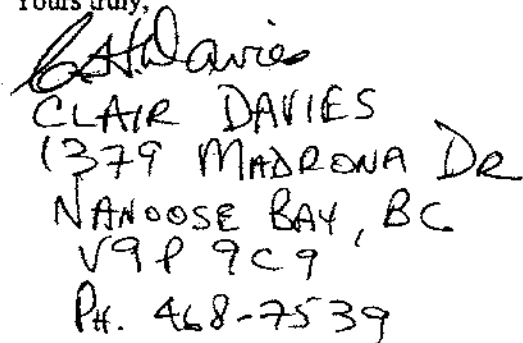 Yours truly,
C.H. Davies
CLAIR DAVIES
1379 MADRONA DR
NANOOSE BAY, BC
V9P 9C9
PH. 468-7539